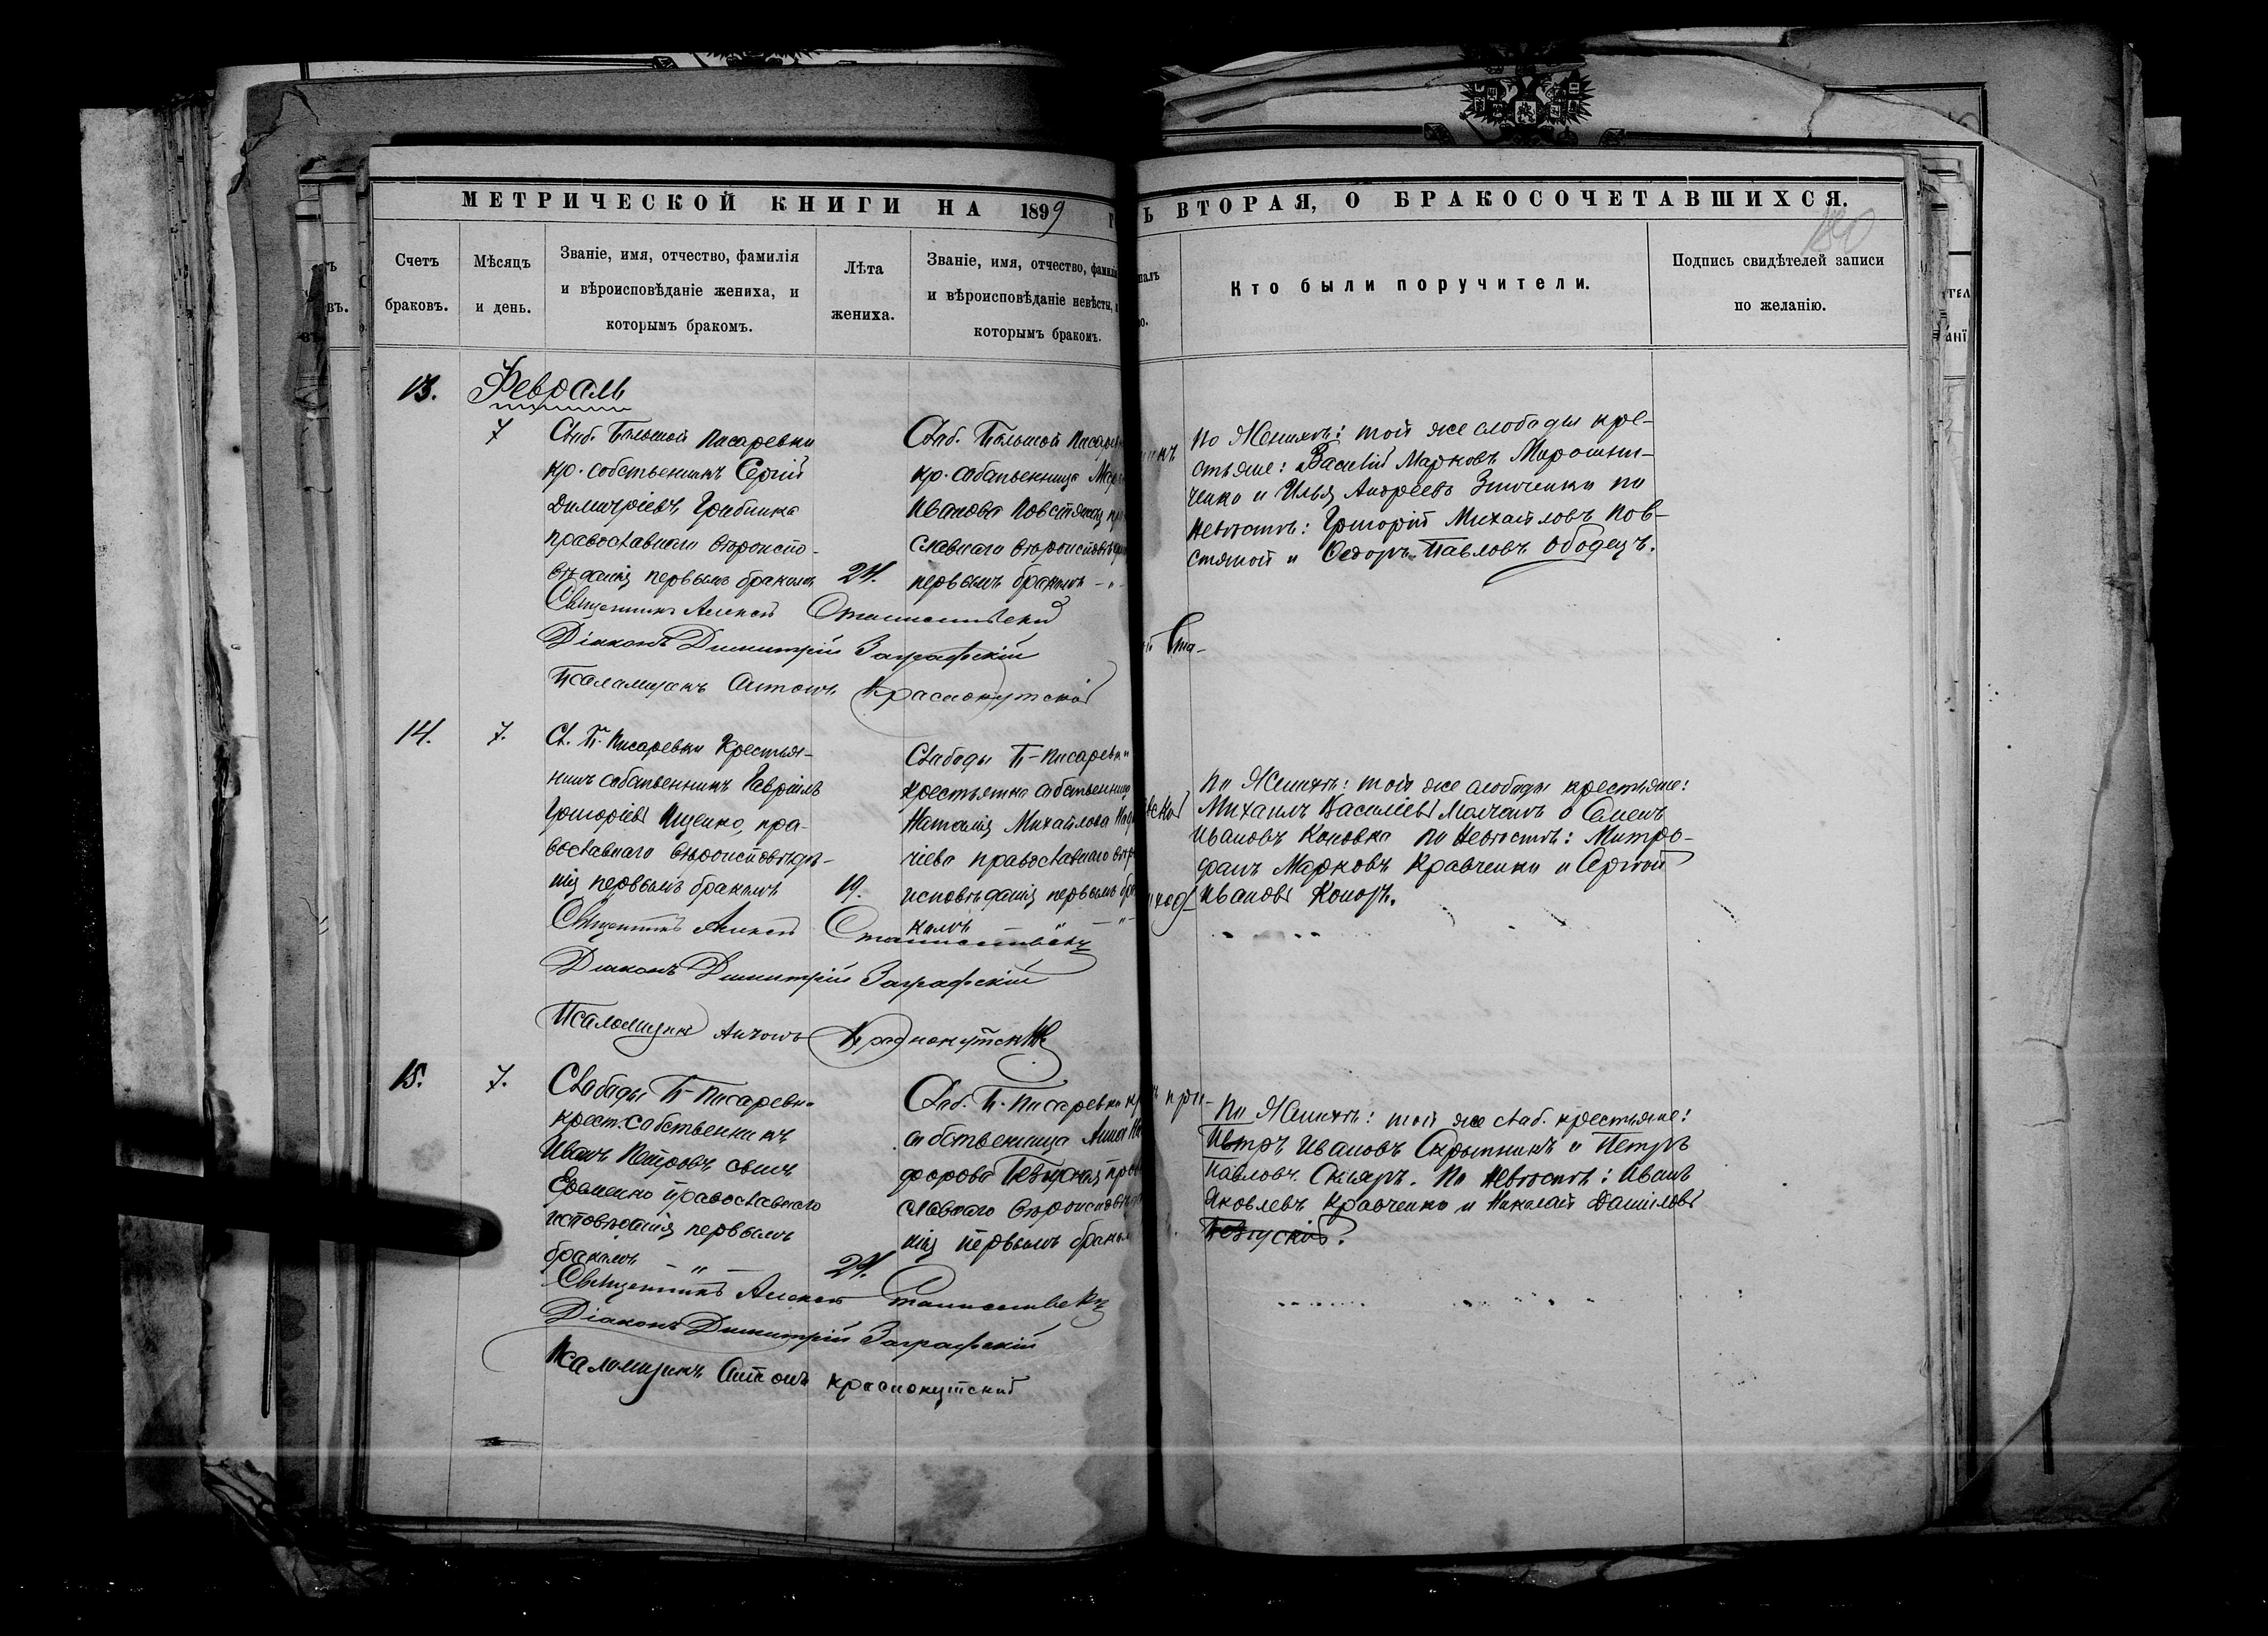 МЕТРИЧЕСКОЙ КНИГИ НА 1899
Ь ВТОРАЯ, О БРАКОСОЧЕТАВШИХСЯ.
Счетъ браковъ.
Мѣсяцъ и день.
Званіе, имя, отчество, фамилія
и вѣроисповѣданіе жениха, и
которымъ бракомъ.
Лѣта жениха.
Званіе, имя, отчество, фамилі
и вѣроисповѣданіе невѣсты,
которымъ бракомъ.
Кто были поручители.
Подпись свидѣтелей записи
по желанію.
13.
Февраль
7
Слоб. Большой Писаревки
кр. собственникъ Сергій
Димитріевъ Грибинка
православнаго вѣроиспо-
вѣданія первымъ бракомъ
24.
Слоб. Большой Писарев
кр. собственница Мар
Иванова Повстяная пр
славнаго вѣроисповѣдан
первымъ бракомъ
По Женихѣ: той же слободы кре-
стьяне: Василій Марковъ Мирошни-
ченко и Илья Андреевъ Зинченко по
Невѣстѣ: Григорій Михайловъ Пов-
стяной и Ѳедоръ Павловъ Ободецъ.
Священникъ Алексѣй Станиславскій
Діаконъ Димитрій Заграфскій
Псаломщикъ Антонъ Краснокутскій
14.
7.
Сл. Б. Писаревки Крестья-
нинъ собственникъ Гавріилъ
Григоріевъ Ищенко, пра-
вославнаго вѣроисповѣда-
нія первымъ бракомъ
19.
Слободы Б-Писаревки
крестьянка собственниц
Наталія Михайлова
чіева православнаго вѣро
исповѣданія первымъ бра
комъ
По Женихѣ: той же слободы крестьяне:
Михаилъ Василіевъ Молчанъ и Семенъ
Ивановъ Коновка по Невѣстѣ: Митро-
фанъ Марковъ Кравченко и Сергѣй
Ивановъ Коноръ.
Священникъ Алексѣй Станиславскій
Діаконъ Димитрій Заграфскій
Псаломщикъ Антонъ Краснокутскій
15.
7.
Слободы Б-Писаревки
крест. собственникъ
Иванъ Петровъ сынъ
Еременко православнаго
исповѣданія первымъ
бракомъ
24.
Слоб. Б. Писаревки кр
собственница Анна
дорова православ
славнаго вѣроисповѣда
нія первымъ браком
По Женихѣ: той же слоб. крестьяне:
Петръ Ивановъ Скрыпникъ и Петръ
Павловъ Скляръ. По Невѣстѣ: Иванъ
Яковлевъ Кравченко и Николай Даніиловъ
Священникъ Алексѣй Станиславскій
Діаконъ Димитрій Заграфскій
Псаломщикъ Антонъ Краснокутскій